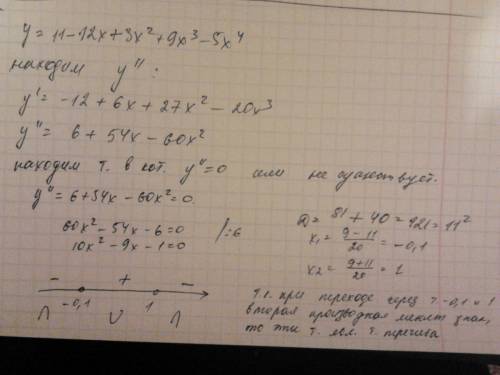 y = 11 - 12x + 3x² + 9x³ - 5x⁴
находим y'' :
y' = -12 + 6x + 27x² - 20x³
y'' = 6 + 54x - 60x²
находим т. в кот. y'' = 0 или не существует.
y'' = 6 + 54x - 60x² = 0
60x² - 54x - 6 = 0 /:6
10x² - 9x - 1 = 0
D = 81 + 40 = 121 = 11²
x₁ = (9 - 11)/20 = -0,1
x₂ = (9 + 11)/20 = 1
- + -
-0,1 1
∩ ∪ ∩
т.к. при переходе через т. -0,1 и 1
вторая производная меняет знак,
то эти т. явл. т. перегиба